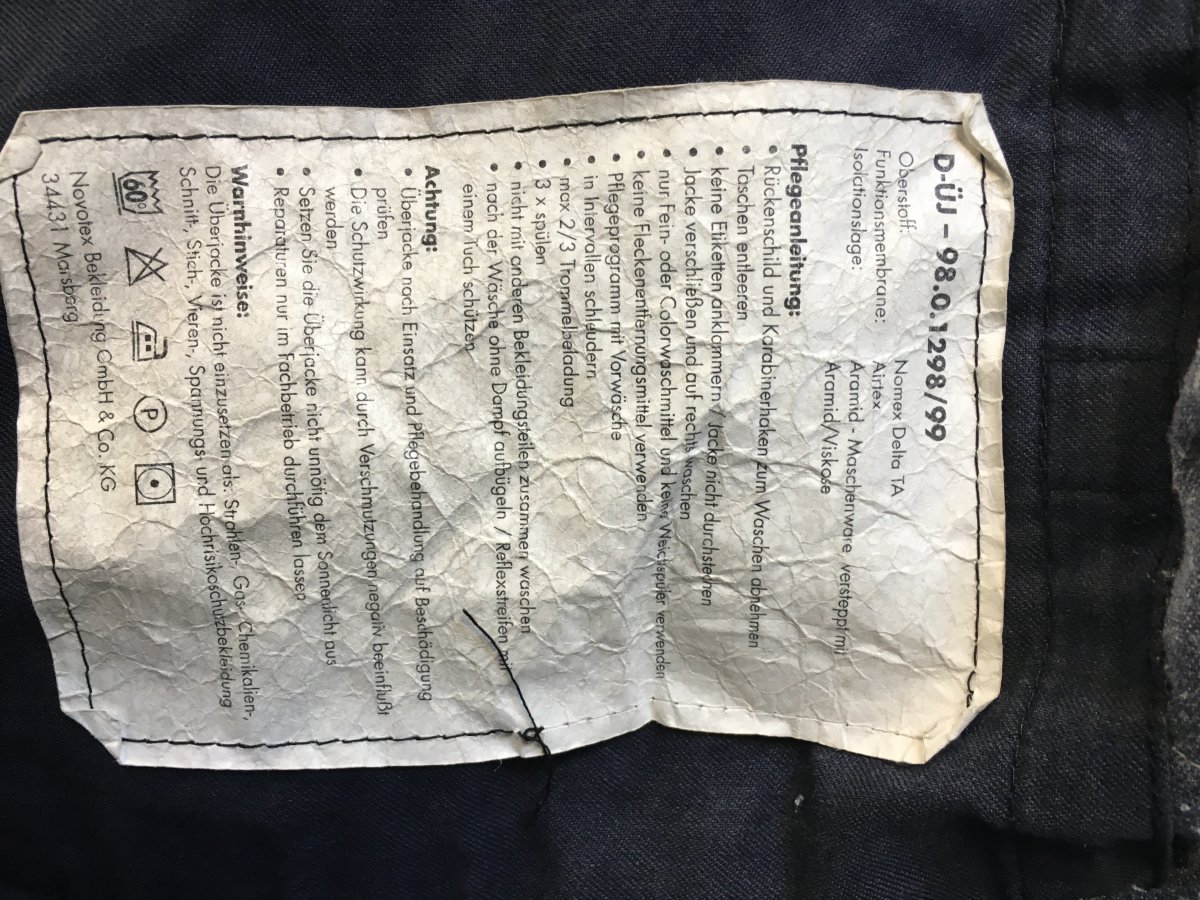 D-ÜJ – 98.0.1298/99
Oberstoff: Nomex Delta TA
Funktionsmembrane: Airtex
Isolationslage: Aramid - Maschenware versteppt mit
Aramid/Viskose
Pflegeanleitung:
• Rückenschild und Karabinerhaken zum Waschen abnehmen
• Taschen entleeren
• keine Etiketten anklammern / Jacke nicht durchstechen
• Jacke verschließen und auf rechts waschen
• nur Fein- oder Colorwaschmittel und keine Weichspüler verwenden
• keine Fleckenentfernungsmittel verwenden
• Pflegeprogramm mit Vorwäsche
• in Intervallen schleudern
• max. 2/3 Trommelbeladung
• 3 x spülen
• nicht mit anderen Bekleidungsteilen zusammen waschen
• nach der Wäsche ohne Dampf aufbügeln / Reflexstreifen mit
einem Tuch schützen
Achtung:
• Überjacke nach Einsatz und Pflegebehandlung auf Beschädigung
prüfen
• Die Schutzwirkung kann durch Verschmutzungen negativ beeinflußt
werden
• Setzen Sie die Überjacke nicht unnötig dem Sonnenlicht aus
• Reparaturen nur im Fachbetrieb durchführen lassen
Warnhinweise:
Die Überjacke ist nicht einzusetzen als: Strahlen-, Gas-Chemikalien-,
Schnitt-, Stich-, Vieren-, Spannungs- und Hochrisikoschutzbekleidung
60° P
Novotex Bekleidung GmbH & Co. KG
34431 Marsberg